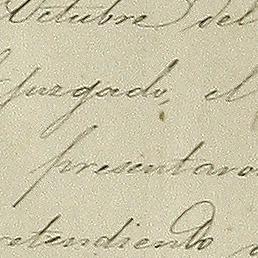 Octubre del
juzgado, el
presentaro
retendiendo